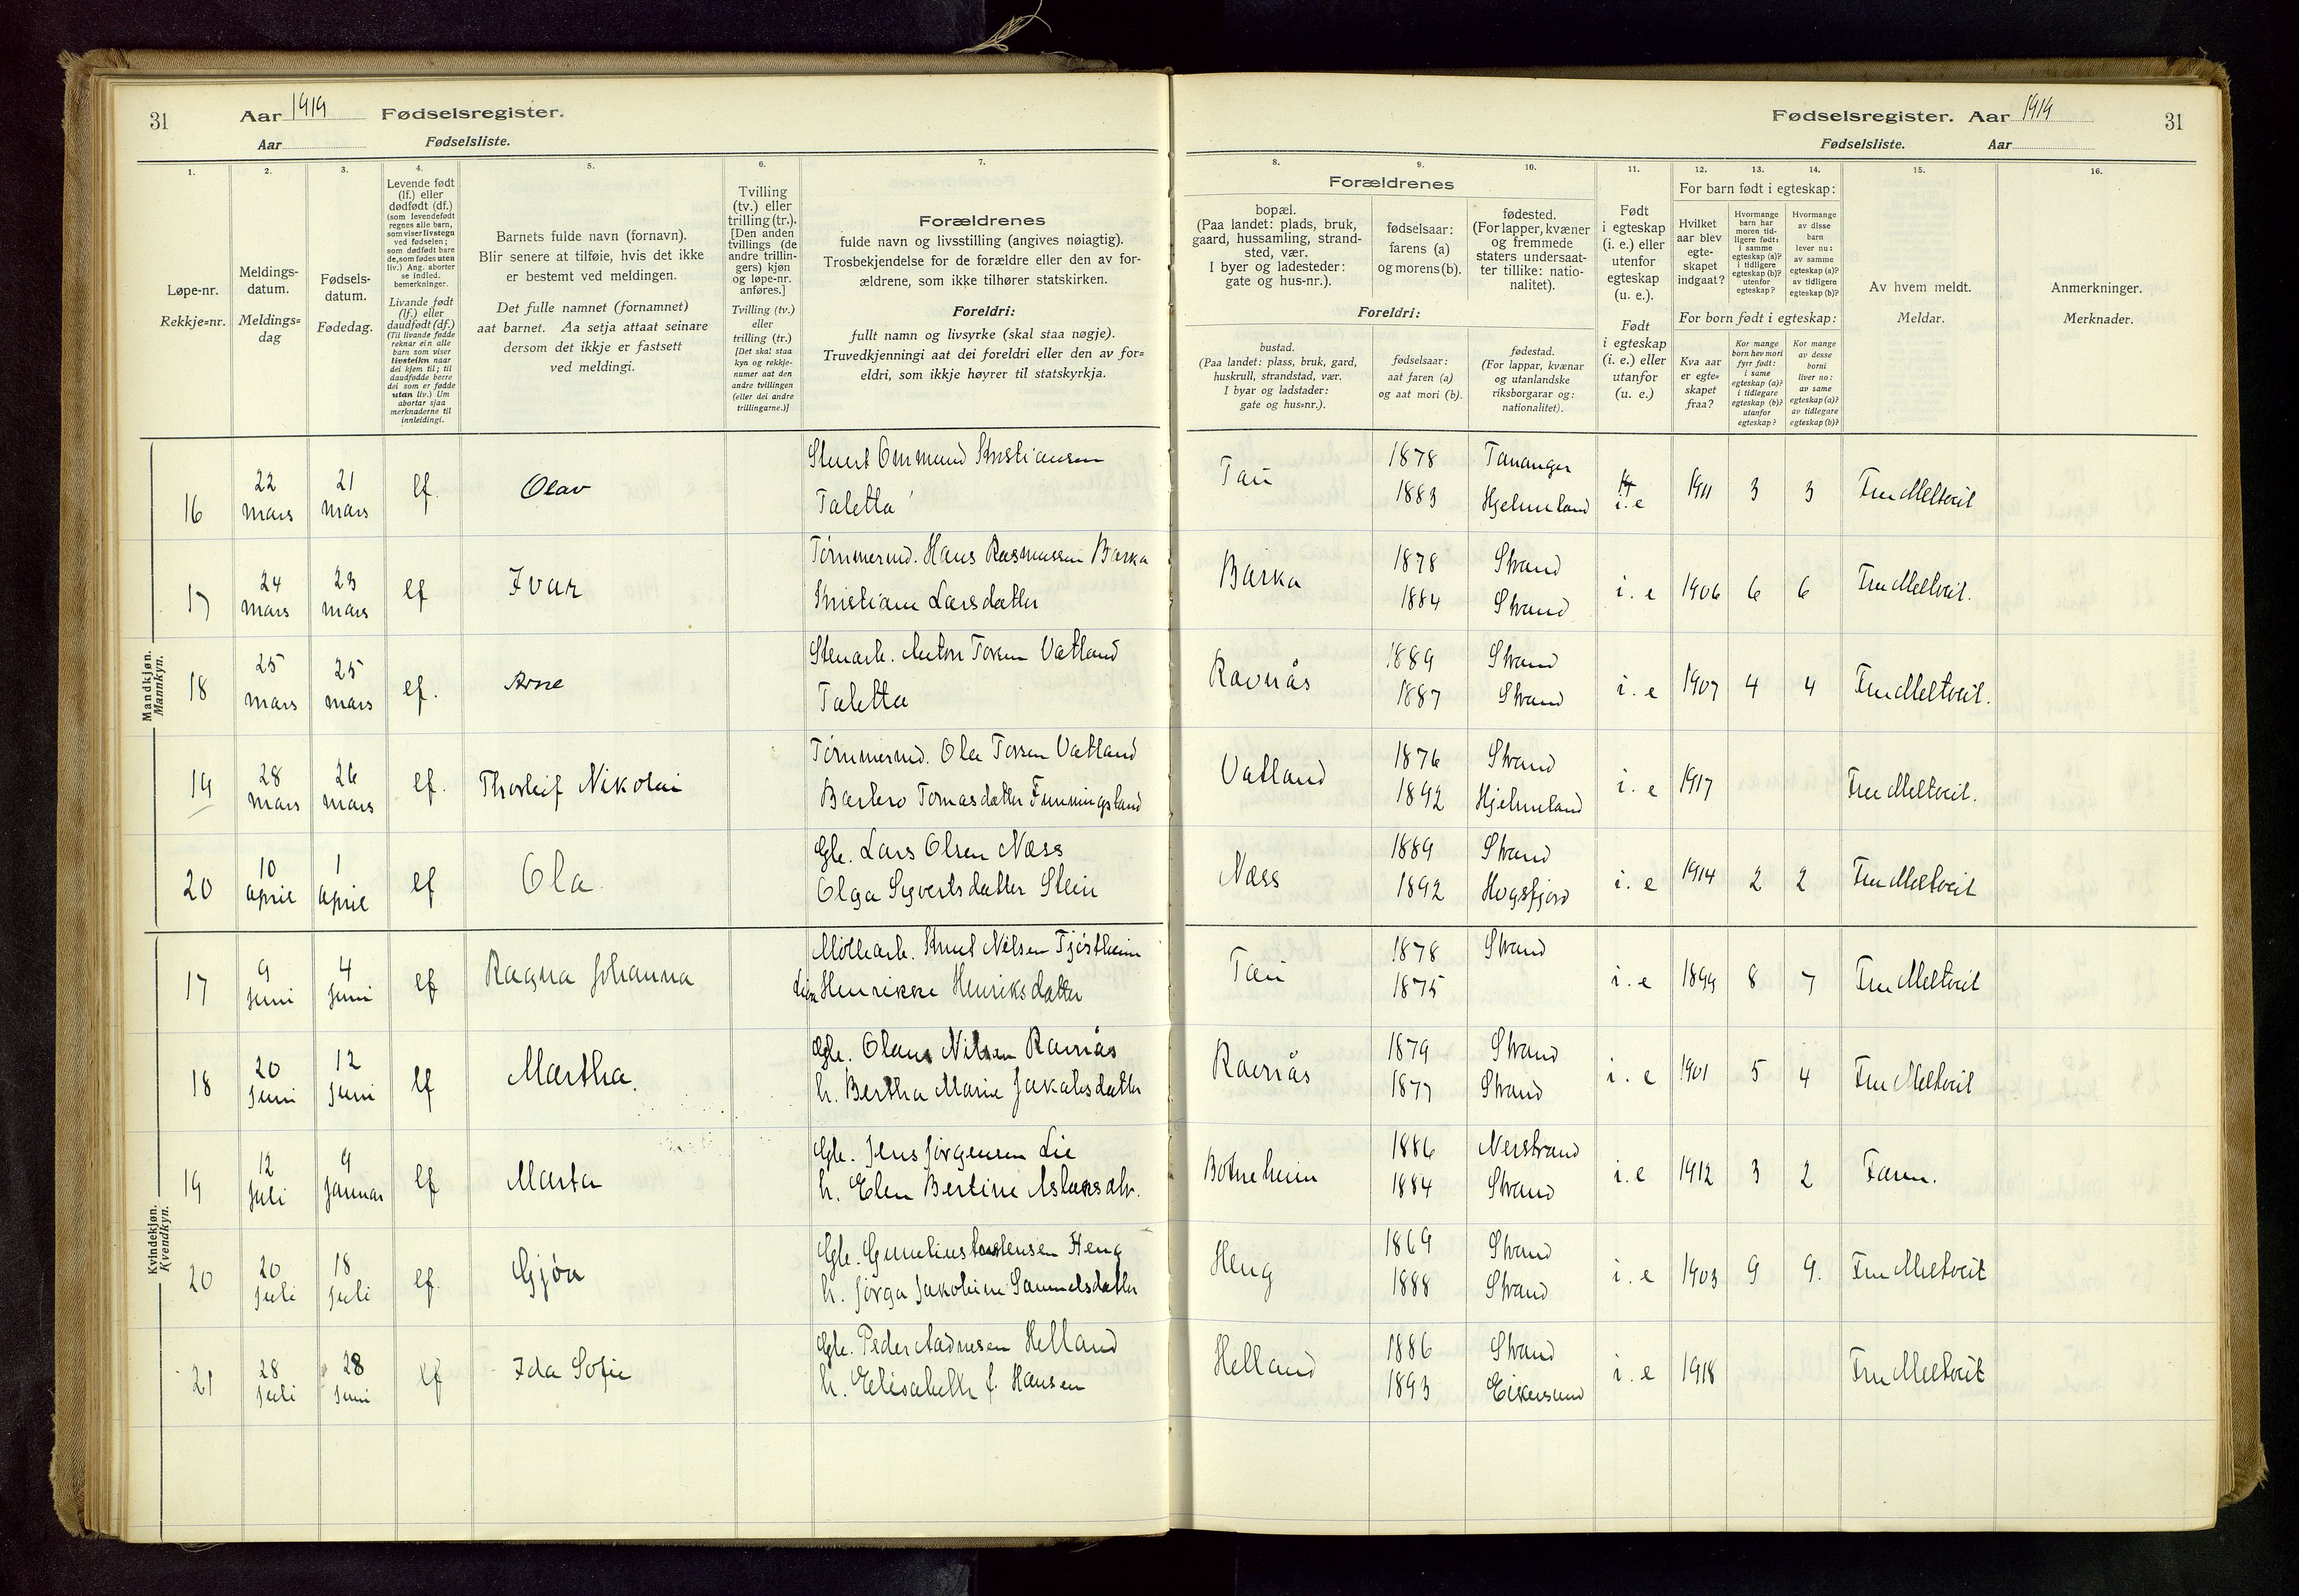 31 Aar 1919 Fødselsregister.
Aar Fødselsliste.
1. 2. 3. 4. 5. 6. 7.
Løpe-nr.
Rekkje=nr.
Meldings-
datum.
Meldings=
dag
Fødsels-
datum.
Fødedag.
Levende født
(lf.) eller
dødfødt (df.)
(som levendefødt
regnes alle barn,
som viser livstegn
ved fødselen;
som dødfødt bare
de, som fødes uten
liv.) Ang. aborter
se indled.
bemerkninger.
Livande født
(lf.) eller
daudfødt (df.)
(Til livande fødde
reknar ein alle
barn som viser
livsteikn naar
dei kjem til; til
daudfødde berre
dei som er fødde
utan liv.) Um
abortar sjaa
merknaderne til
innleidingi.
Barnets fulde navn (fornavn).
Blir senere at tilføie, hvis det ikke
er bestemt ved meldingen.
Det fulle namnet (fornamnet)
aat barnet. Aa setja attaat seinare
dersom det ikkje er fastsett
ved meldingi.
Tvilling
(tv.) eller
trilling (tr.).
[Den anden
tvillings (de
andre trillin-
gers) kjøn
og løpe-nr.
anføres.]
Tvilling (tv.)
eller
trilling (tr.)
[Det skal staa
kyn og rekkje-
numer aat den
andre tvillingen
(eller dei andre
trillingarne.)]
Forældrenes
fulde navn og livsstilling (angives nøiagtig).
Trosbekjendelse for de forældre eller den av for-
ældrene, som ikke tilhører statskirken.
Foreldri:
fullt namn og livsyrke (skal staa nøgje).
Truvedkjenningi aat dei foreldri eller den av for=
eldri, som ikkje høyrer til statskyrkja.
Mandkjøn.
Mannkyn.
16 22 mars 21 mars lf. Olav
Kristiansen
Taletta
17 24 mars 23 mars lf Ivar
Tømmermd. Hans Rasmussen Barka
Kristiane Larsdatter
18 25 mars 25 mars lf. Arne
Stenarb. Anton Torsen Vatland
Taletta
19 28 mars 26 mars lf. Thorleif Nikolai
Tømmermd. Ola Torsen Vatland
Barbro Tomasdatter Funningsland
20 10 april 1 april lf Ola
Gbr. Lars Olsen Næss
Olga Syvertsdatter Stein
Kvindekjøn.
Kvendkyn.
17 9 juni 4 juni lf Ragna Johanna
Møllearb. Knut Nilsen Tjøstheim
Henrikke Henriksdatter
18 20 juni 12 juni lf Martha.
Gbr. Olaus Nilsen Ravnås
h. Bertha Marie Jakobsdatter
19 12 juli 9 januar lf Marta
Gbr. Jens Jørgensen Lie
h. Elen Bertine Aslaksdtr.
20 20 juli 18 juli lf. Gjøa
Gbr. Heng
h. Jørga Jakobine Samuelsdatter
21 28 juli 28 juni lf Ida Sofie
Gbr. Peder Aadnesen Helland
h. Elisabeth f. Hansen
Fødselsregister. Aar 1919 31
Fødselsliste. Aar
8. 9. 10. 11. 12. 13. 14. 15. 16.
Forældrenes
bopæl.
(Paa landet: plads, bruk,
gaard, hussamling, strand-
sted, vær.
I byer og ladesteder:
gate og hus-nr.).
fødselsaar:
farens (a)
og morens (b).
fødested.
(For lapper, kvæner
og fremmede
staters undersaat-
ter tillike: natio-
nalitet).
Foreldri:
bustad.
(Paa landet: plass, bruk, gard,
huskrull, strandstad, vær.
I byar og ladstader:
gate og hus=nr.).
fødselsaar:
aat faren (a)
og aat mori (b).
fødestad.
(For lappar, kvænar
og utanlandske
riksborgarar og:
nationalitet).
Født
i egteskap
(i. e.) eller
utenfor
egteskap
(u. e.).
Født
i egteskap
(i. e.) eller
utanfor
(u. e.)
For barn født i egteskap:
Hvilket
aar blev
egte-
skapet
indgaat?
Hvormange
barn har
moren tid-
ligere født:
i samme
egteskap (a)?
i tidligere
egteskap (b)?
utenfor
egteskap?
Hvormange
av disse
barn
lever nu:
av samme
egteskap (a)?
av tidligere
egteskap (b)?
For born født i egteskap:
Kva aar
er egte=
skapet
fraa?
Kor mange
born hev mori
fyrr født:
i same
egteskap (a)?
i tidlegare
egteskap (b)?
utanfor
egteskap?
Kor mange
av desse
borni
liver no:
av same
egteskap (a)?
av tidlegare
egteskap (b)?
Av hvem meldt.
Meldar.
Anmerkninger.
Merknader.
Tau 1878 Tananger
1883 Hjelmeland i. e 1911 3 3 Fru Meltveit
Barka 1878 Strand
1884 Strand i. e 1906 6 6 Fru Meltveit.
Ravnås 1889 Strand
1887 Strand i. e 1907 4 4 Fru Meltveit.
Vatland 1876 Strand
1892 Hjelmeland i. e 1917 Fru Meltveit.
Næss 1889 Strand
1892 Høgsfjord i. e 1914 2 2 Fru Meltveit
Tau 1878 Strand
1875 i. e 1899 8 7 Fru Meltveit
Ravnås 1879 Strand
1877 Strand i. e 1901 5 4 Fru Meltveit
Botneheim 1886 Nerstrand
1884 Strand i. e 1912 3 2 Faren.
Heng 1869 Strand
1888 Strand i. e 1903 9 9. Fru Meltveit
Helland 1886 Strand
1893 Eikersund i. e 1918 Fru Meltveit